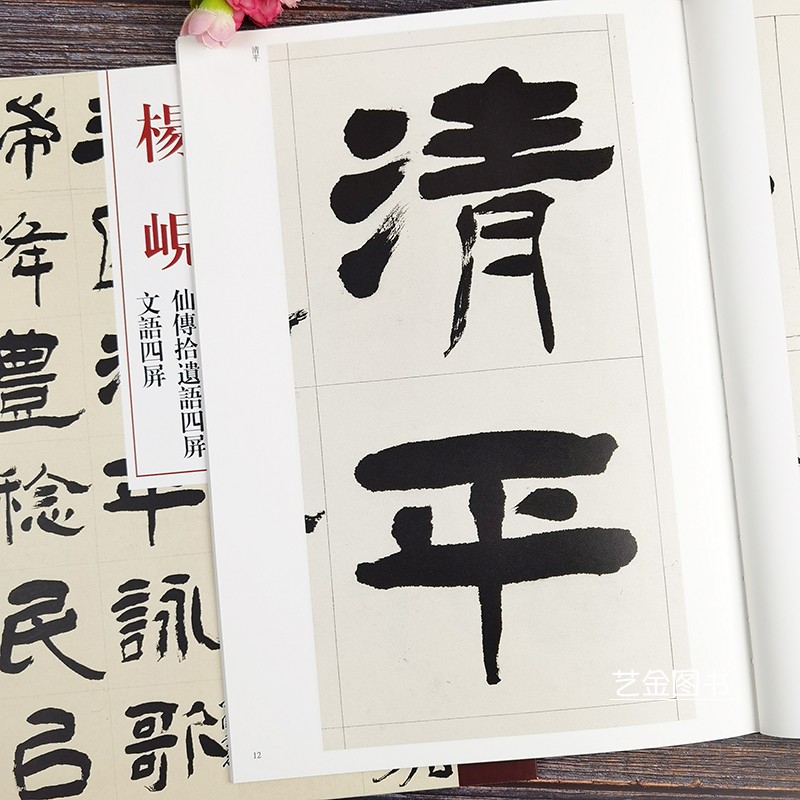 清平
清
平
12
楊峴
仙傳拾遺語四屏
文語四屏
清
平
詠
歌
降
豊
稔
民
艺金图书